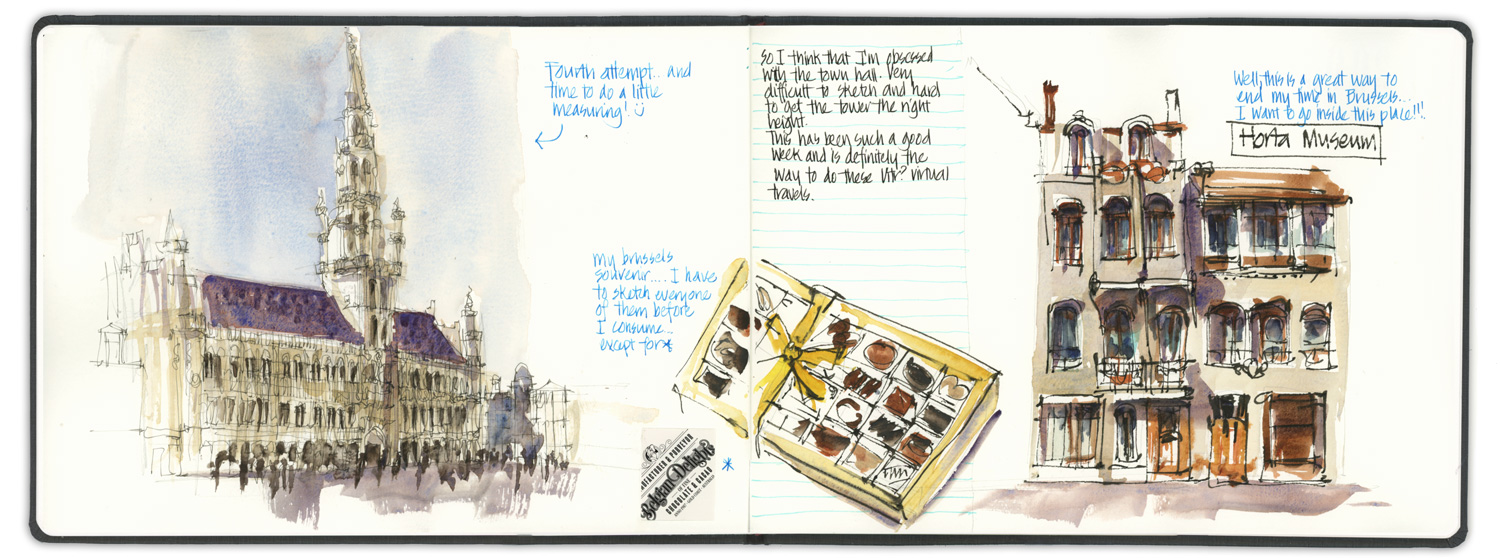 Fourth attempt.. and
time to do a little
measuring!
my brussels
souvenir.... I have
to sketch everyone
of them before
I consume...
except for*
Belgian Delights
CHOCOLATE & CACAO
*
So I think that I'm obsessed
with the town hall. Very
difficult to sketch and hard
to get the tower the right
height.
This has been such a good
week and is definitely the
way to do these Vtr? virtual
travels.
Well, this is a great way to
end my time in Brussels...
I want to go inside this place!!!
Horta Museum